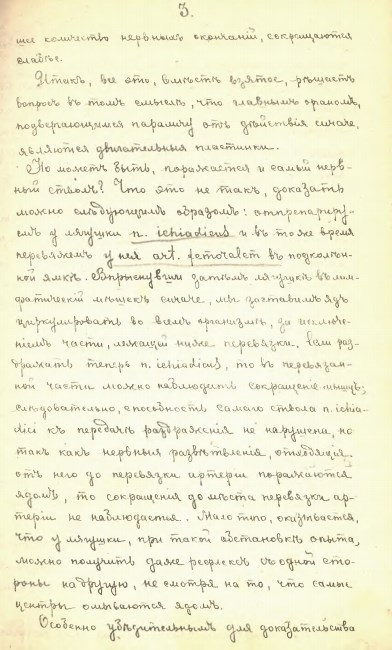 3.
щее количество нервныхъ окончаній, сокращаются
слабѣе.
Итакъ, все это, вмѣстѣ взятое, рѣшаетъ
вопросъ въ томъ смыслѣ, что главнымъ органомъ,
подвергающимся параличу отъ дѣйствія curare,
являются двигательныя пластинки.
Но можетъ быть, поражается и самый нерв-
ный стволъ? Что это не такъ, доказать
можно слѣдующимъ образомъ: отпрепариру-
емъ у лягушки n. ichiadicus и въ тоже время
перевяжемъ у нея art. femoralem въ подколѣн-
ной ямкѣ. Впрыснувши затѣмъ лягушкѣ въ лим-
фатическій мѣшекъ curare, мы заставимъ ядъ
циркулировать во всемъ организмѣ, за исключе-
ніемъ части, лежащей ниже перевязки. Если раз-
дражать теперь n. ichiadicus, то въ перевязан-
ной части можно наблюдать сокращеніе мышцъ;
слѣдовательно, способность самаго ствола n. ichia-
dici къ передачѣ раздраженія не нарушена, но
такъ какъ нервныя развѣтвленія, отходящія
отъ него до перевязки артеріи поражаются
ядомъ, то сокращенія до мѣста перевязки ар-
теріи не наблюдается. Мало того, оказывается,
что у лягушки, при такой обстановкѣ опыта,
можно получить даже рефлексъ съ одной сто-
роны на другую, не смотря на то, что самые
центры омываются ядомъ.
Особенно убѣдительнымъ для доказательства